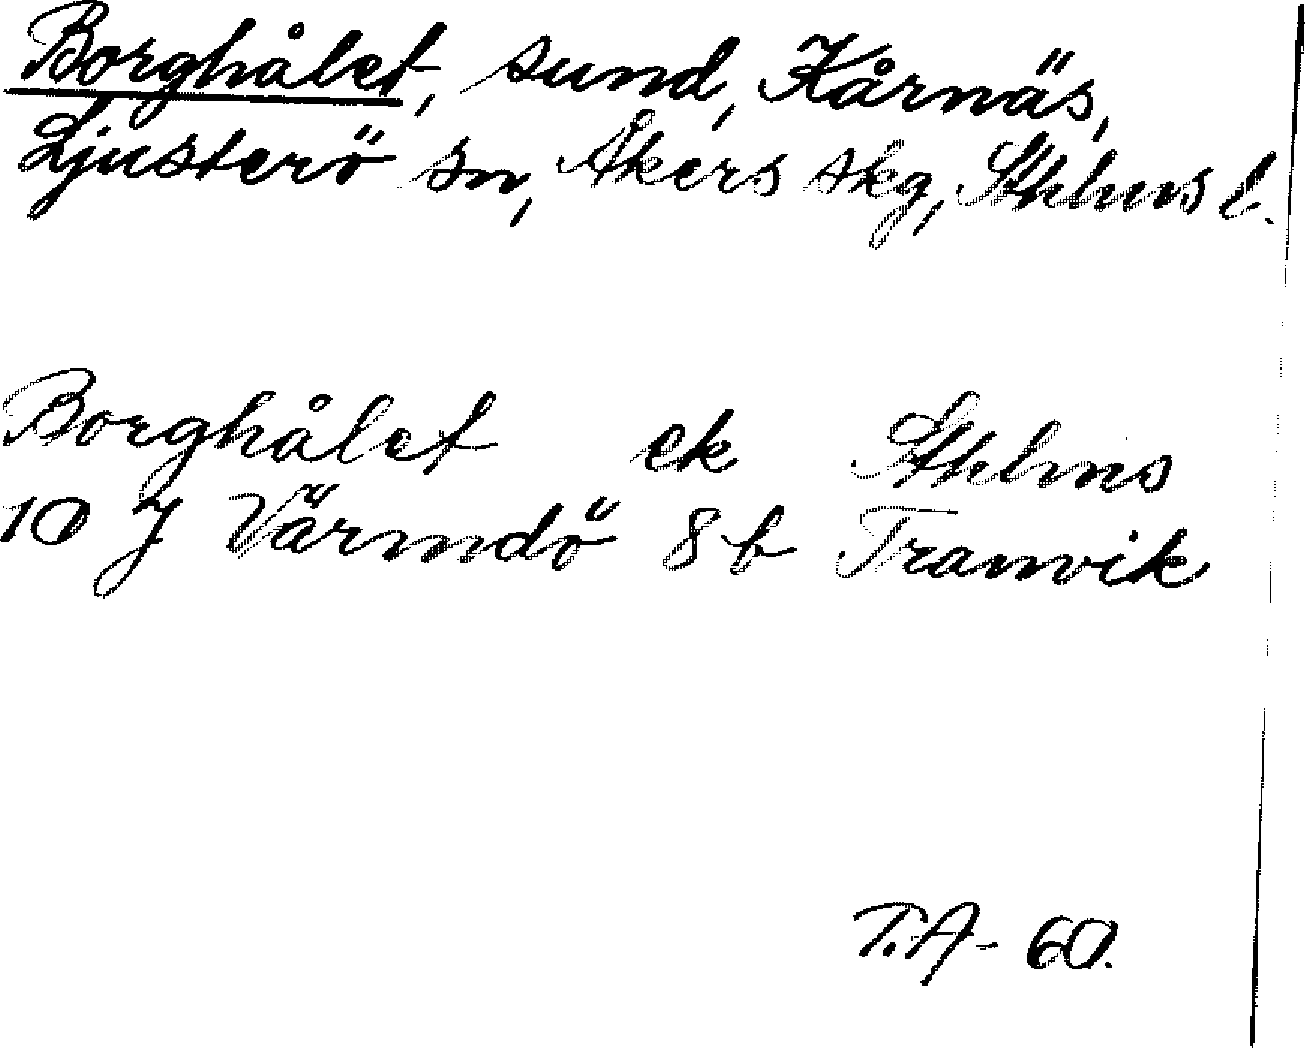 Borghålet, sund, Kårnäs,
Ljusterö sn, Åkers skg, Sthlms l.
Borghålet ek Sthlms
10 J Värmdö 8 b Tranvik
T.A- 60.